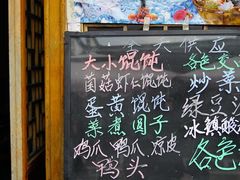 大供应
大小馄饨
菌菇虾仁馄饨
蛋黄馄饨
菜煮圆子
鸡爪、鸭爪、凉皮
鸭头
各色
炒菜
绿豆
冰镇酸
各色